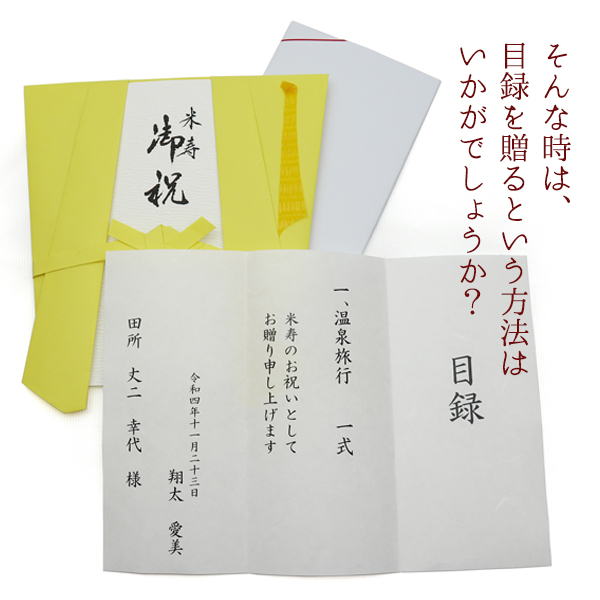 そんな時は、
目録を贈るという方法は
いかがでしょうか？
米寿
御祝
目録
一、温泉旅行　一式
米寿のお祝いとして
お贈り申し上げます
令和四年十一月二十三日
翔太　愛美
田所　丈二　幸代　様